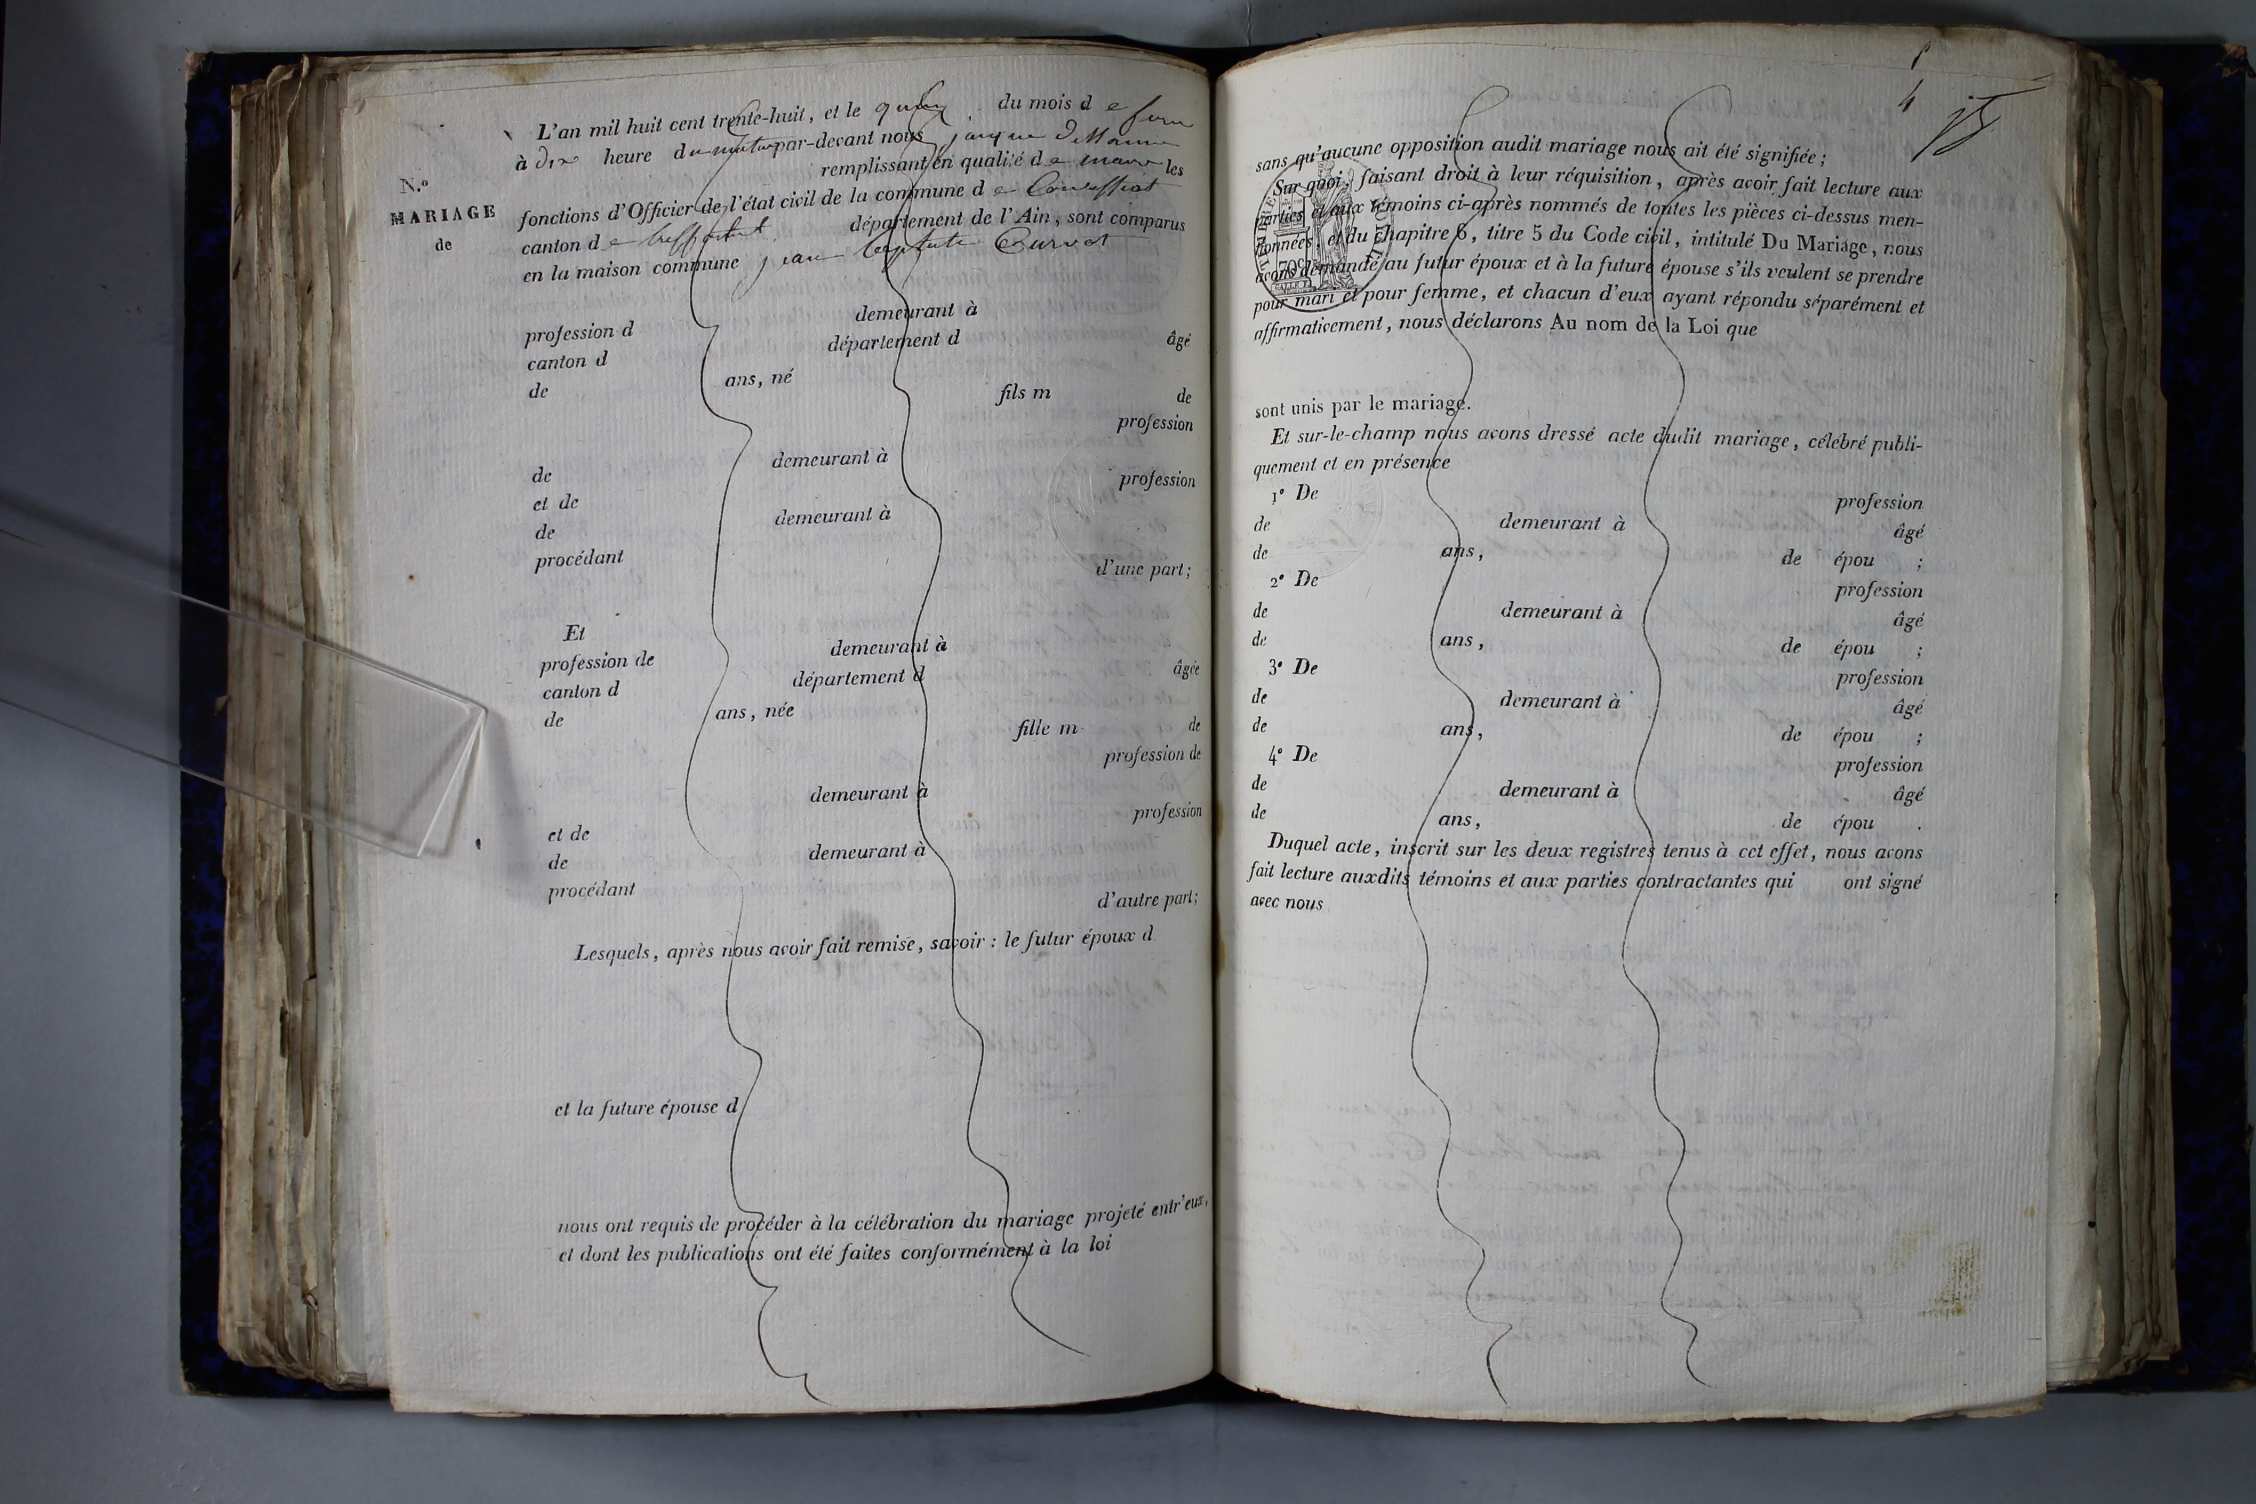 L'an mil huit cent trente-huit, et le quinze du mois de
à dix heure du matin par-devant nous, jacque
remplissant en qualité de maire les
N.º
MARIAGE
de
fonctions d'Officier de l'état civil de la commune de
canton de treffort département de l'Ain, sont comparus
en la maison commune jean baptiste
demeurant à
profession d
département d
canton d âgé
de ans, né
fils m de
profession
demeurant à
de profession
et de
demeurant à
de
procédant
d'une part;
Et
demeurant à
profession de
département d âgée
canton d
de ans, née
fille m de
profession de
demeurant à
profession
et de
demeurant à
de
procédant
d'autre part;
Lesquels, après nous avoir fait remise, savoir : le futur époux d
et la future épouse d
nous ont requis de procéder à la célébration du mariage projeté entr'eux,
et dont les publications ont été faites conformément à la loi
4
sans qu'aucune opposition audit mariage nous ait été signifiée;
Sur quoi, faisant droit à leur réquisition, après avoir fait lecture aux
parties et aux témoins ci-après nommés de toutes les pièces ci-dessus men-
tionnées, et du chapitre 6, titre 5 du Code civil, intitulé Du Mariage, nous
avons demandé au futur époux et à la future épouse s'ils veulent se prendre
pour mari et pour femme, et chacun d'eux ayant répondu séparément et
affirmativement, nous déclarons Au nom de la Loi que
70c
sont unis par le mariage.
Et sur-le-champ nous avons dressé acte dudit mariage, célébré publi-
quement et en présence
1º De profession
de demeurant à âgé
de ans, de épou ;
2º De profession
de demeurant à âgé
de ans, de épou ;
3º De profession
de demeurant à âgé
de ans, de épou ;
4º De profession
de demeurant à âgé
de ans, de épou .
Duquel acte, inscrit sur les deux registres tenus à cet effet, nous avons
fait lecture auxdits témoins et aux parties contractantes qui ont signé
avec nous